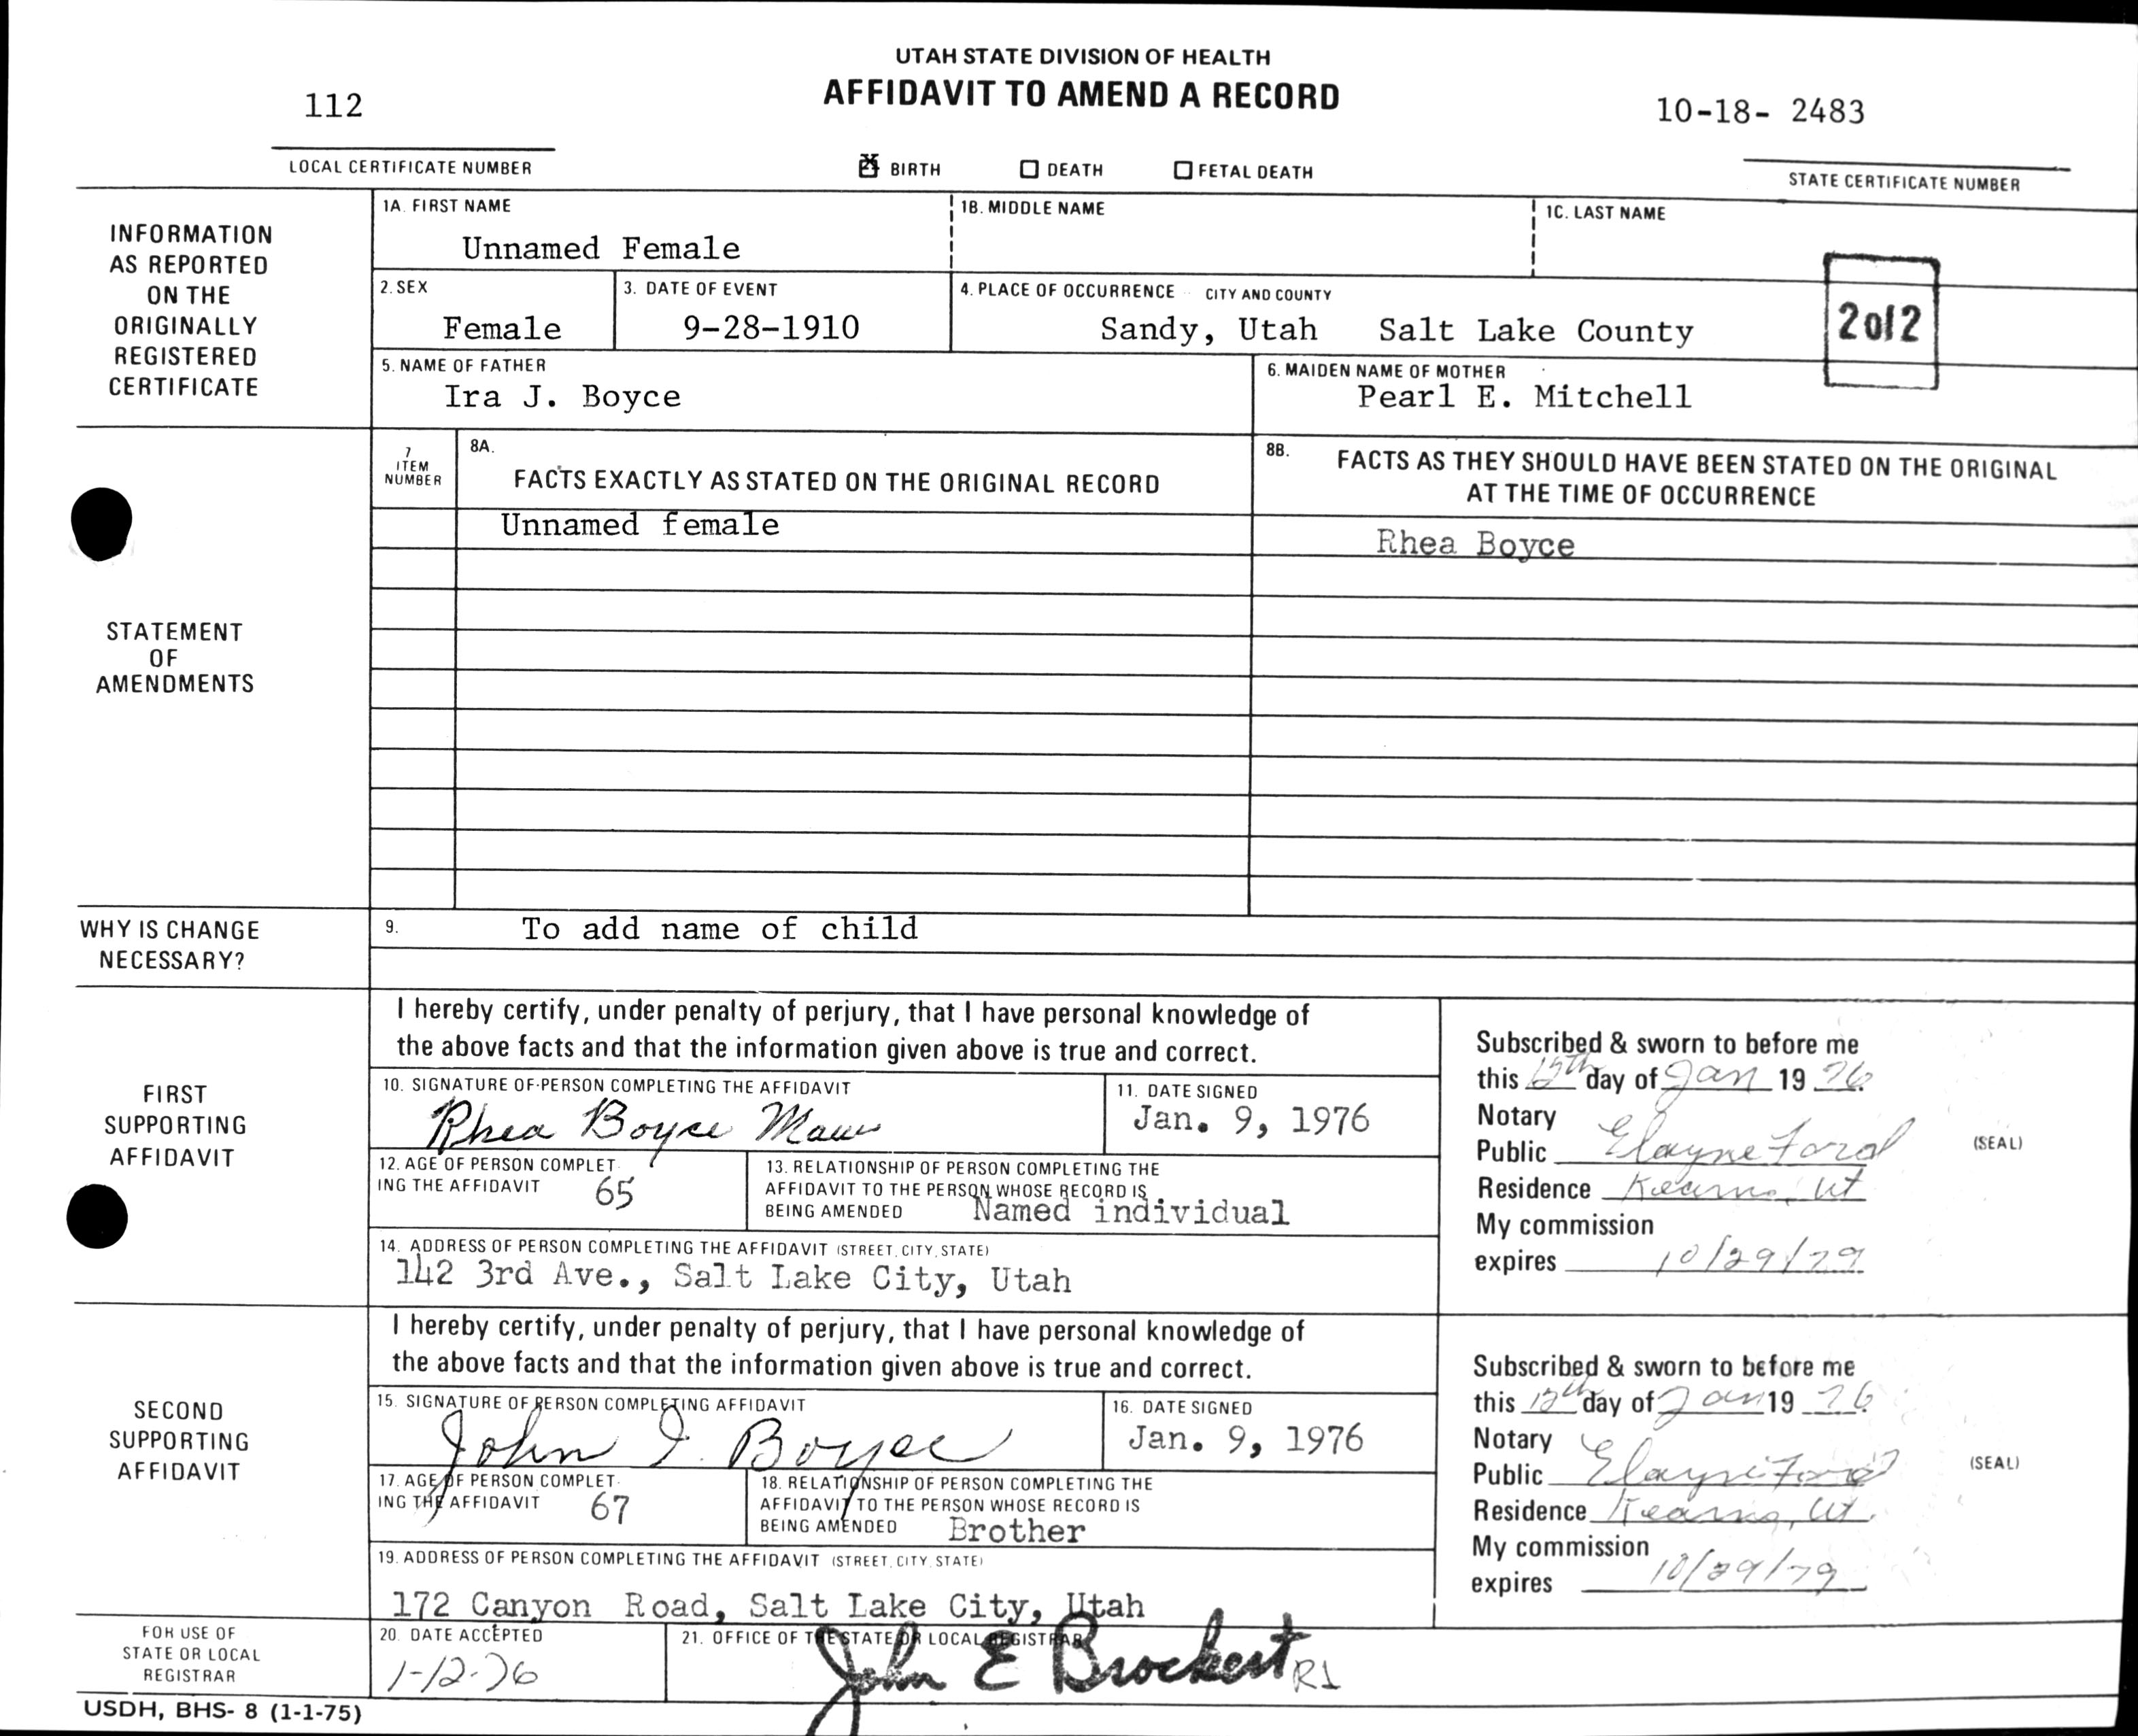 UTAH STATE DIVISION OF HEALTH
AFFIDAVIT TO AMEND A RECORD
112
10-18- 2483
LOCAL CERTIFICATE NUMBER
BIRTH DEATH FETAL DEATH
STATE CERTIFICATE NUMBER
INFORMATION
AS REPORTED
ON THE
ORIGINALLY
REGISTERED
CERTIFICATE
1A. FIRST NAME
Unnamed Female
1B. MIDDLE NAME
1C. LAST NAME
2. SEX
Female
3. DATE OF EVENT
9-28-1910
4. PLACE OF OCCURRENCE CITY AND COUNTY
Sandy, Utah Salt Lake County
2of2
5. NAME OF FATHER
Ira J. Boyce
6. MAIDEN NAME OF MOTHER
Pearl E. Mitchell
STATEMENT
OF
AMENDMENTS
7
ITEM
NUMBER
8A.
FACTS EXACTLY AS STATED ON THE ORIGINAL RECORD
8B.
FACTS AS THEY SHOULD HAVE BEEN STATED ON THE ORIGINAL
AT THE TIME OF OCCURRENCE
Unnamed female
Rhea Boyce
WHY IS CHANGE
NECESSARY?
9. To add name of child
FIRST
SUPPORTING
AFFIDAVIT
I hereby certify, under penalty of perjury, that I have personal knowledge of
the above facts and that the information given above is true and correct.
10. SIGNATURE OF PERSON COMPLETING THE AFFIDAVIT
Rhea Boyce Maw
11. DATE SIGNED
Jan. 9, 1976
12. AGE OF PERSON COMPLET-
ING THE AFFIDAVIT 65
13. RELATIONSHIP OF PERSON COMPLETING THE
AFFIDAVIT TO THE PERSON WHOSE RECORD IS
BEING AMENDED Named individual
14. ADDRESS OF PERSON COMPLETING THE AFFIDAVIT (STREET, CITY, STATE)
142 3rd Ave., Salt Lake City, Utah
Subscribed & sworn to before me
this 12th day of Jan 19 76
Notary
Public Elayne Ford
(SEAL)
Residence Kearns, Ut
My commission
expires 10/29/79
SECOND
SUPPORTING
AFFIDAVIT
I hereby certify, under penalty of perjury, that I have personal knowledge of
the above facts and that the information given above is true and correct.
15. SIGNATURE OF PERSON COMPLETING AFFIDAVIT
John I. Boyce
16. DATE SIGNED
Jan. 9, 1976
17. AGE OF PERSON COMPLET-
ING THE AFFIDAVIT 67
18. RELATIONSHIP OF PERSON COMPLETING THE
AFFIDAVIT TO THE PERSON WHOSE RECORD IS
BEING AMENDED Brother
19. ADDRESS OF PERSON COMPLETING THE AFFIDAVIT (STREET, CITY, STATE)
172 Canyon Road, Salt Lake City, Utah
Subscribed & sworn to before me
this 12th day of Jan 19 76
Notary
Public Elayne Ford
(SEAL)
Residence Kearns, Ut.
My commission
expires 10/29/79
FOR USE OF
STATE OR LOCAL
REGISTRAR
20. DATE ACCEPTED
1-12-76
21. OFFICE OF THE STATE OR LOCAL REGISTRAR
John E Brockert R1
USDH, BHS- 8 (1-1-75)